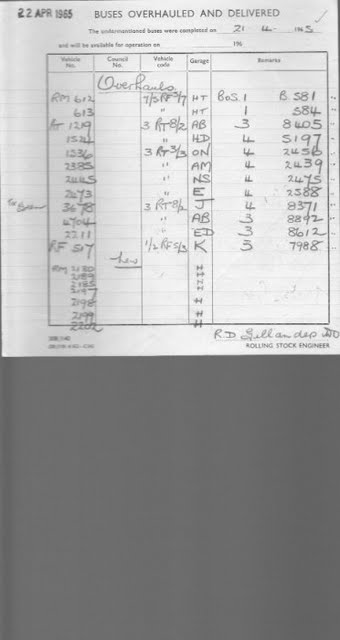 22 APR 1965 BUSES OVERHAULED AND DELIVERED
The undermentioned buses were completed on 21 - 4 - 1965
and will be available for operation on 196
Vehicle No. Council No. Vehicle code Garage Remarks
Overhauls
RM 612 7/5 RM 5/7 HT BoS. 1 B 581 "
613 " HT 1 584 "
RT 1219 3 RT 8/2 AB 3 8405 "
" HD 4 5197 "
1536 3 RT 3/3 ON 4 2456 "
2385 " AM 4 2439 "
2445 " NS 4 2475 "
2473 " E 4 2388 "
3678 3 RT 8/2 J 4 8371 "
4704 " AB 3 8892 "
2211 " ED 3 8612 "
RF 517 1/2 RF 5/3 K 3 7988 "
New
RM 2180 H
2189 H
2195 H
2197 H
2198 H
2199 H
2202 H
ROLLING STOCK ENGINEER